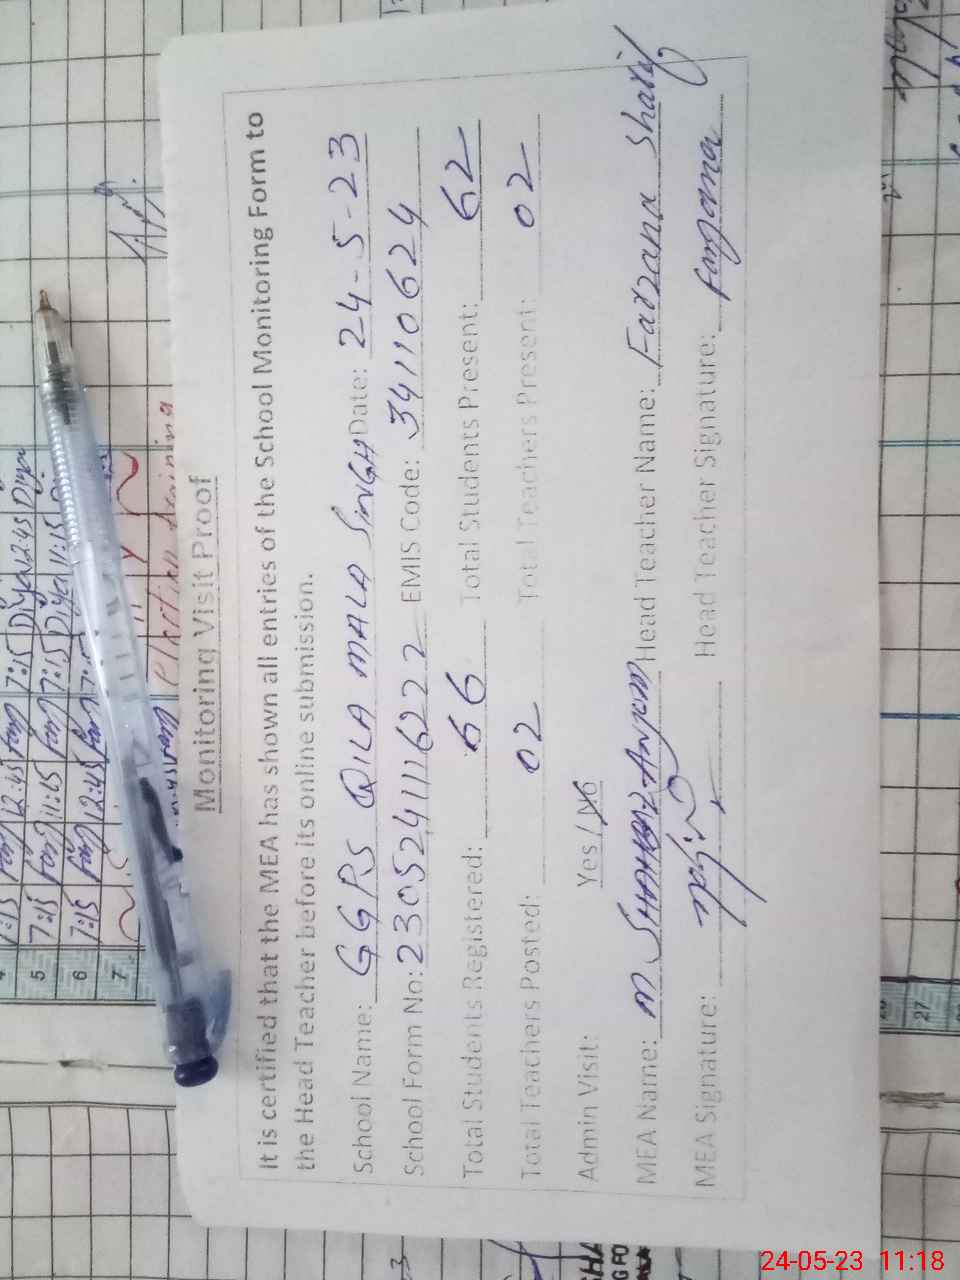 Monitoring Visit Proof
It is certified that the MEA has shown all entries of the School Monitoring Form to
the Head Teacher before its online submission.
School Name: GGPS QILA MALA SINGH Date: 24-5-23
School Form No: 2305241116222 EMIS Code: 34110624
Total Students Registered: 66 Total Students Present: 62
Total Teachers Posted: 02 Total Teachers Present: 02
Admin Visit: Yes / No
MEA Name: M SHAHBAZ ANJUM Head Teacher Name: Farzana Sharif
MEA Signature: Head Teacher Signature: Farzana
5 7:15 11:45 7:15 Diya 12:45 Diya
6 7:15 12:45 Diya 11:15
7
Election training
27
24-05-23 11:18